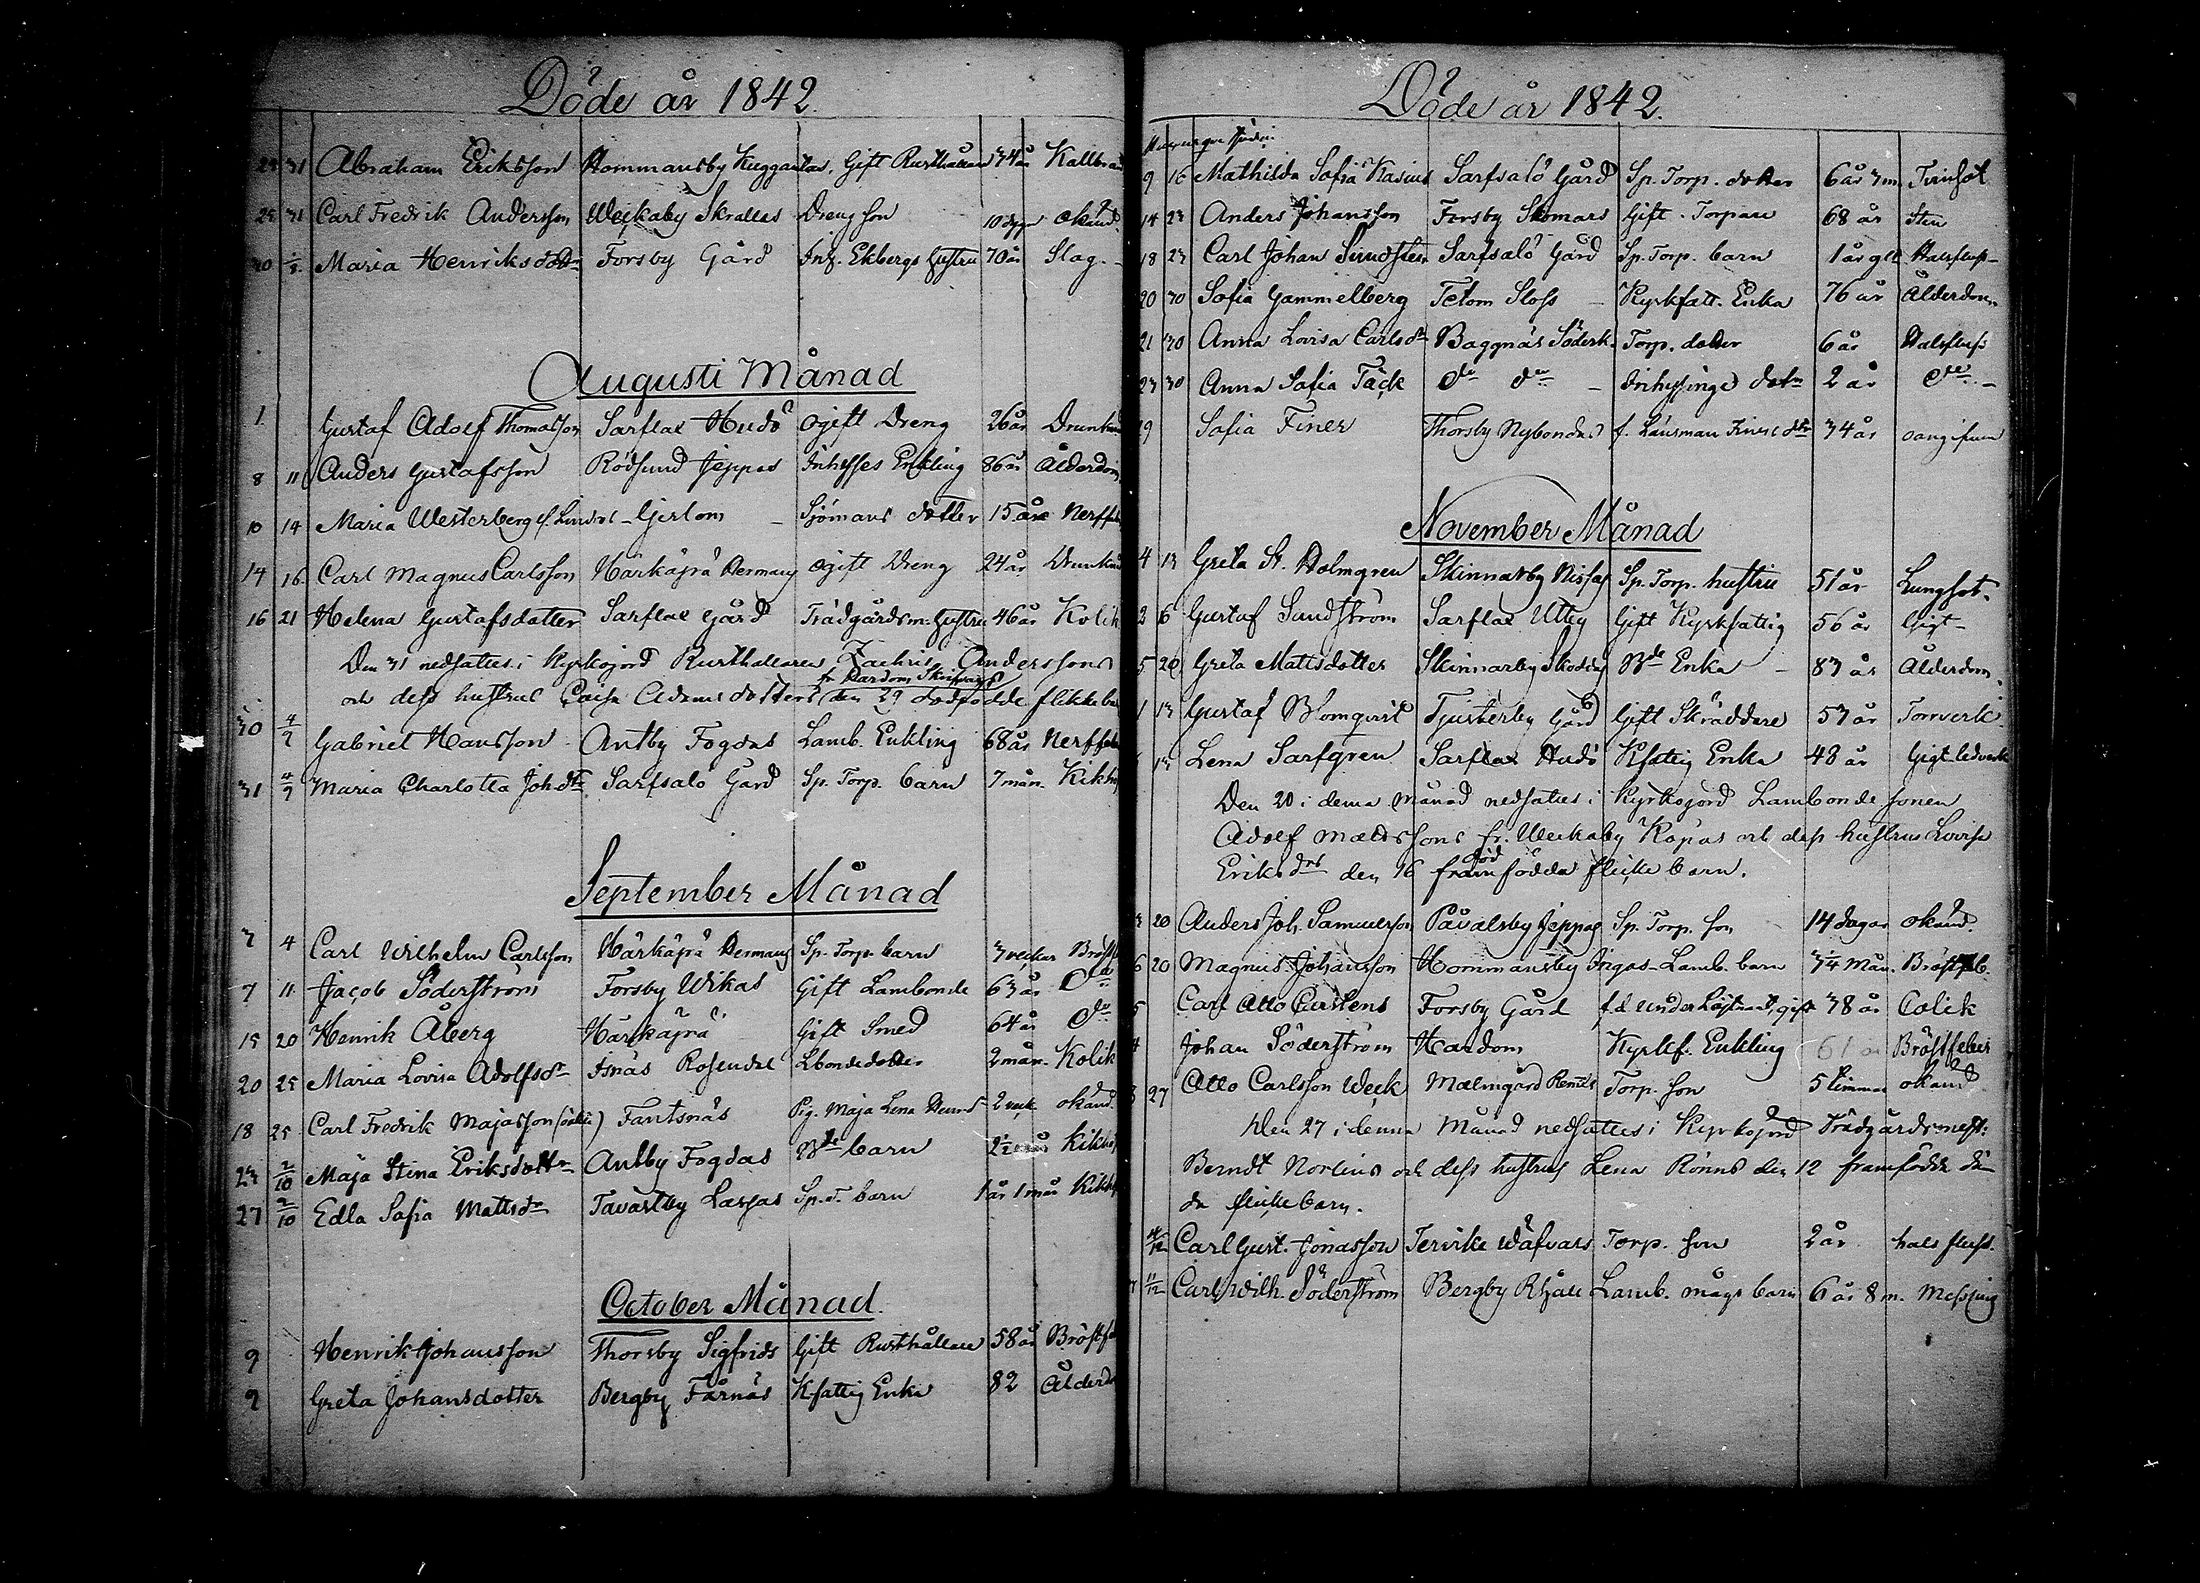 Döde år 1842.
29 31 Abraham Eriksson Hommansby Kuggas Gift Rusthållare 74 år Kallbrand
25 31 Carl Fredrik Andersson Weckaby Skrallas Dreng son 10 dygn okänd
30 Maria Henriksdotr Forsby Gård Inh. Ekbergs hustru 70 år Slag.
Augusti Månad
1. Gustaf Adolf Thomasson Sarflax Hudö ogift Dreng 26 år
8 11 Anders Gustafsson Rödsund Jeppas Inhysses Enkling 86 år Ålderdom
10 14 Maria Westerberg Gislom Sjömans dotter 15 år Nerffeb
14 16 Carl Magnus Carlsson Härkäprä Hermans ogift Dreng 24 år
16 21 Helena Gustafsdotter Sarflax Gård Trädgårdsm. hustru 46 år Kolik
Den 31 nedsattes i Kyrkojord Rusthållaren Zachris Anderssons
fr Hardom Skinnars
och dess hustrus Caisa Adamsdotters den 29 dödfödde flickebarn
30 4/9 Gabriel Hansson Antby Fogdas Lamb. Enkling 68 år Nerffeb
31 4/9 Maria Charlotta Joh.dtr Sarfsalö Gård Sp. Torp. barn 7 mån. Kikh
September Månad
3 4 Carl Wilhelm Carlsson Härkäprä Hermans Sp. Torp. barn 3 veckor Bröstf
7 11 Jacob Söderström Forsby Wikas Gift Lambonde 63 år do
15 20 Henrik Åberg Härkäprä Gift Smed 64 år do
20 25 Maria Lovisa Adolfsdr Isnäs Rosendal Lbondedotter 2 mån. Kolik
18 25 Carl Fredrik Majasson (oäkta) Fantsnäs Pig. Maja Lena 2 veck okänd.
23 2/10 Maja Stina Eriksdottr Antby Fogdas Bde barn 2½ Kikh
27 2/10 Edla Sofia Mattsdr Tavastby Lassas Sp. T. barn 1 år 1 mån Kikh
October Månad.
9 Henrik Johansson Thorsby Sigfrids Gift Rusthållare 58 år Bröstf
9 Greta Johansdotter Bergby Fårnäs Kfattig Enka 82 Ålderd
Döde år 1842.
9 16 Mathilda Sofia Kasius Sarfsalö Gård Sp. Torp. dotter 6 år 3 m. Tvinsot
14 23 Anders Johansson Forsby Skomars Gift Torpare 68 år Sten
18 23 Carl Johan Sundsten Sarfsalö Gård Sp. Torp. barn 1 år gl. Halsfluss
20 30 Sofia Gammelberg Tetom Sloss Kyrkfatt. Enka 76 år Ålderdom
21 30 Anna Lovisa Carlsdr Baggnäs Söderk. Torp. dotter 6 år Halsfluss
23 30 Anna Sofia Täck do do Inhysinge dotr 2 år do
29 Sofia Finer Thorsby Nybondas f. Länsman Finers dotr 34 år oangifven
November Månad
4 13 Greta St. Holmgren Skinnarby Nissas Sp. Torp. hustru 51 år Lungsot.
2 6 Gustaf Sundström Sarflax Utby Gift Kyrkfattig 56 år Gigt
5 20 Greta Mattsdotter Skinnarby Bde Enka 83 år Ålderdom.
1 13 Gustaf Blomqvist Tjusterby Gård Gift Skräddare 53 år Torrverk
13 Lena Sarfgren Sarflax Hudö Kfattig Enka 48 år Gigt ledverk
Den 20 i denna månad nedsattes i Kyrkojord Lambonde sonen
Adolf Mattssons fr. Weckaby Ropas och dess hustrus Lovisa
död
Eriksdrs den 16 framfödda flicke barn.
20 Anders Joh. Samuelsson Påvalsby Jeppas Sp. Torp. son 14 dagar okänd.
6 20 Magnus Johansson Hommansby Ingas Lamb. barn 3¼ Mån. Bröstfeb.
5 Carl Otto Carstens Forsby Gård f.d. Under Löjtnant, gift 78 år Colik
4 Johan Söderström Hardom Kyrkf. Enkling 61 år Bröstfeber
27 Otto Carlsson Weck Malmgård Torp. son 5 timmar okänd
Den 27 i denna Månad nedsattes i Kyrkojord Trädgårdsmest:
Berndt Norlins och dess hustrus Lena Rönns den 12 framfödda dö
da flickebarn.
4/12 Carl Gust. Jonasson Tervike Wäfvars Torp. son 2 år halsfluss.
11/12 Carl Wilh. Söderström Bergby Lamb. mågs barn 6 år 8 m. Messling